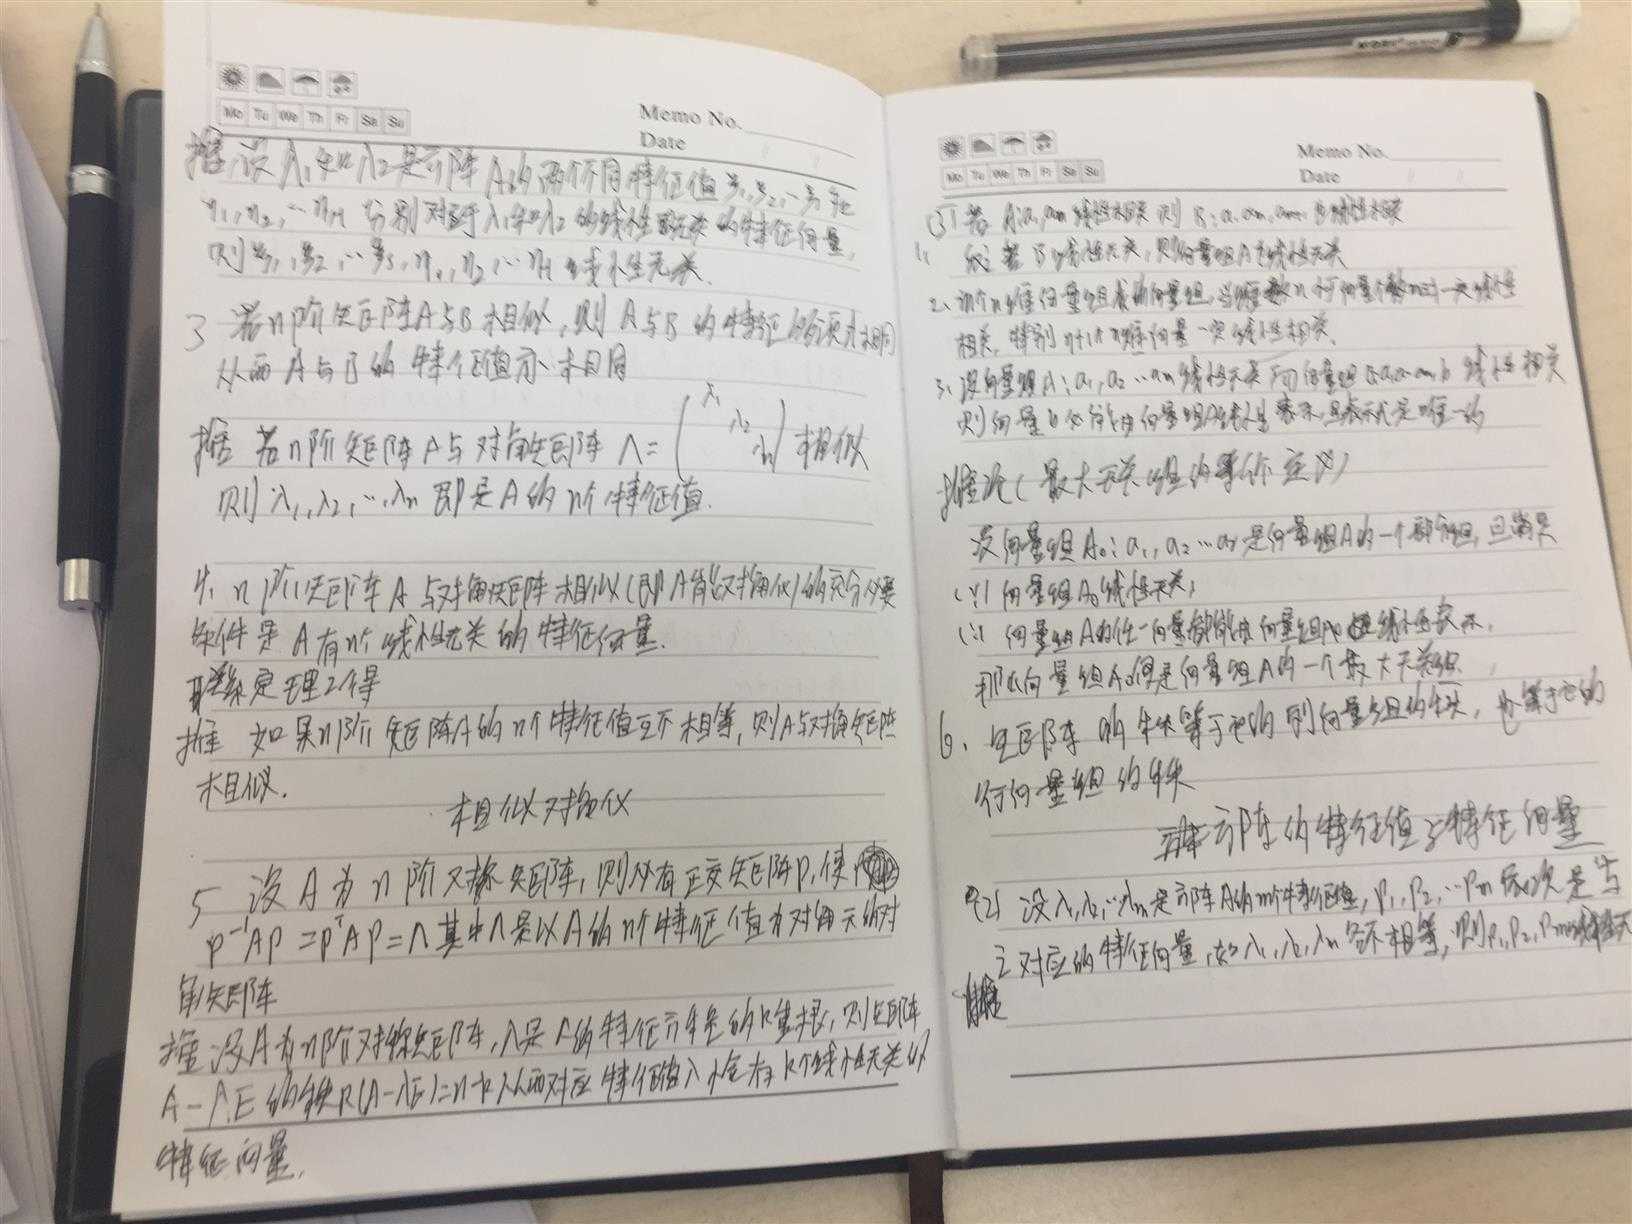 Mo Tu We Th Fr Sa Su
Memo No.
Date
推 设λ1和λ2是方阵A的两个不同特征值 ξ1,ξ2,…ξs和
η1,η2,…ηt 分别对应于λ1和λ2的线性无关的特征向量,
则ξ1,ξ2…ξs,η1,η2,…ηt 线性无关.
3 若n阶矩阵A与B相似,则A与B的特征多项式相同
从而A与B的特征值亦相同
推 若n阶矩阵A与对角矩阵 Λ=(λ1 λ2 λn)相似
则λ1,λ2,…,λn 即是A的n个特征值.
4. n阶矩阵A与对角矩阵相似(即A能对角化)的充分必要
条件是A有n个线性无关的特征向量.
联系定理2得
推 如果n阶矩阵A的n个特征值互不相等,则A与对角矩阵
相似.
相似对角化
5 设A为n阶对称矩阵,则必有正交矩阵P,使
P⁻¹AP=PᵀAP=Λ其中Λ是以A的n个特征值为对角元的对
角矩阵
推 设A为n阶对称矩阵,λ是A的特征方程的k重根,则矩阵
A-λE的秩R(A-λE)=n-k 从而对应特征值λ恰有k个线性无关的
特征向量.
Mo Tu We Th Fr Sa Su
Memo No.
Date
(3) 若 A:a1,am线性相关则B:a1,am,am+1 B线性相关
若B线性无关,则向量组A也线性无关
2. 维向量组成的向量组,当维数n小于向量个数m时一定线性
相关,特别n+1个n维向量一定线性相关.
3. 设向量组A:a1,a2…am线性无关 而向量组B:a1…am,b线性相关
则向量b必能由向量组A线性表示,且表示式是唯一的
推论(最大无关组的等价定义)
设向量组A0:a1,a2…ar是向量组A的一个部分组,且满足
向量组A0线性无关;
向量组A的任一向量都能由向量组A0线性表示.
那么向量组A0便是向量组A的一个最大无关组.
6. 矩阵的秩等于它的列向量组的秩,也等于它的
行向量组的秩
方阵的特征值与特征向量
设λ1,λ2,…λm是方阵A的m个特征值,p1,p2,…pm依次是与
之对应的特征向量,如λ1,λ2,λm各不相等,则p1,p2,pm线性无